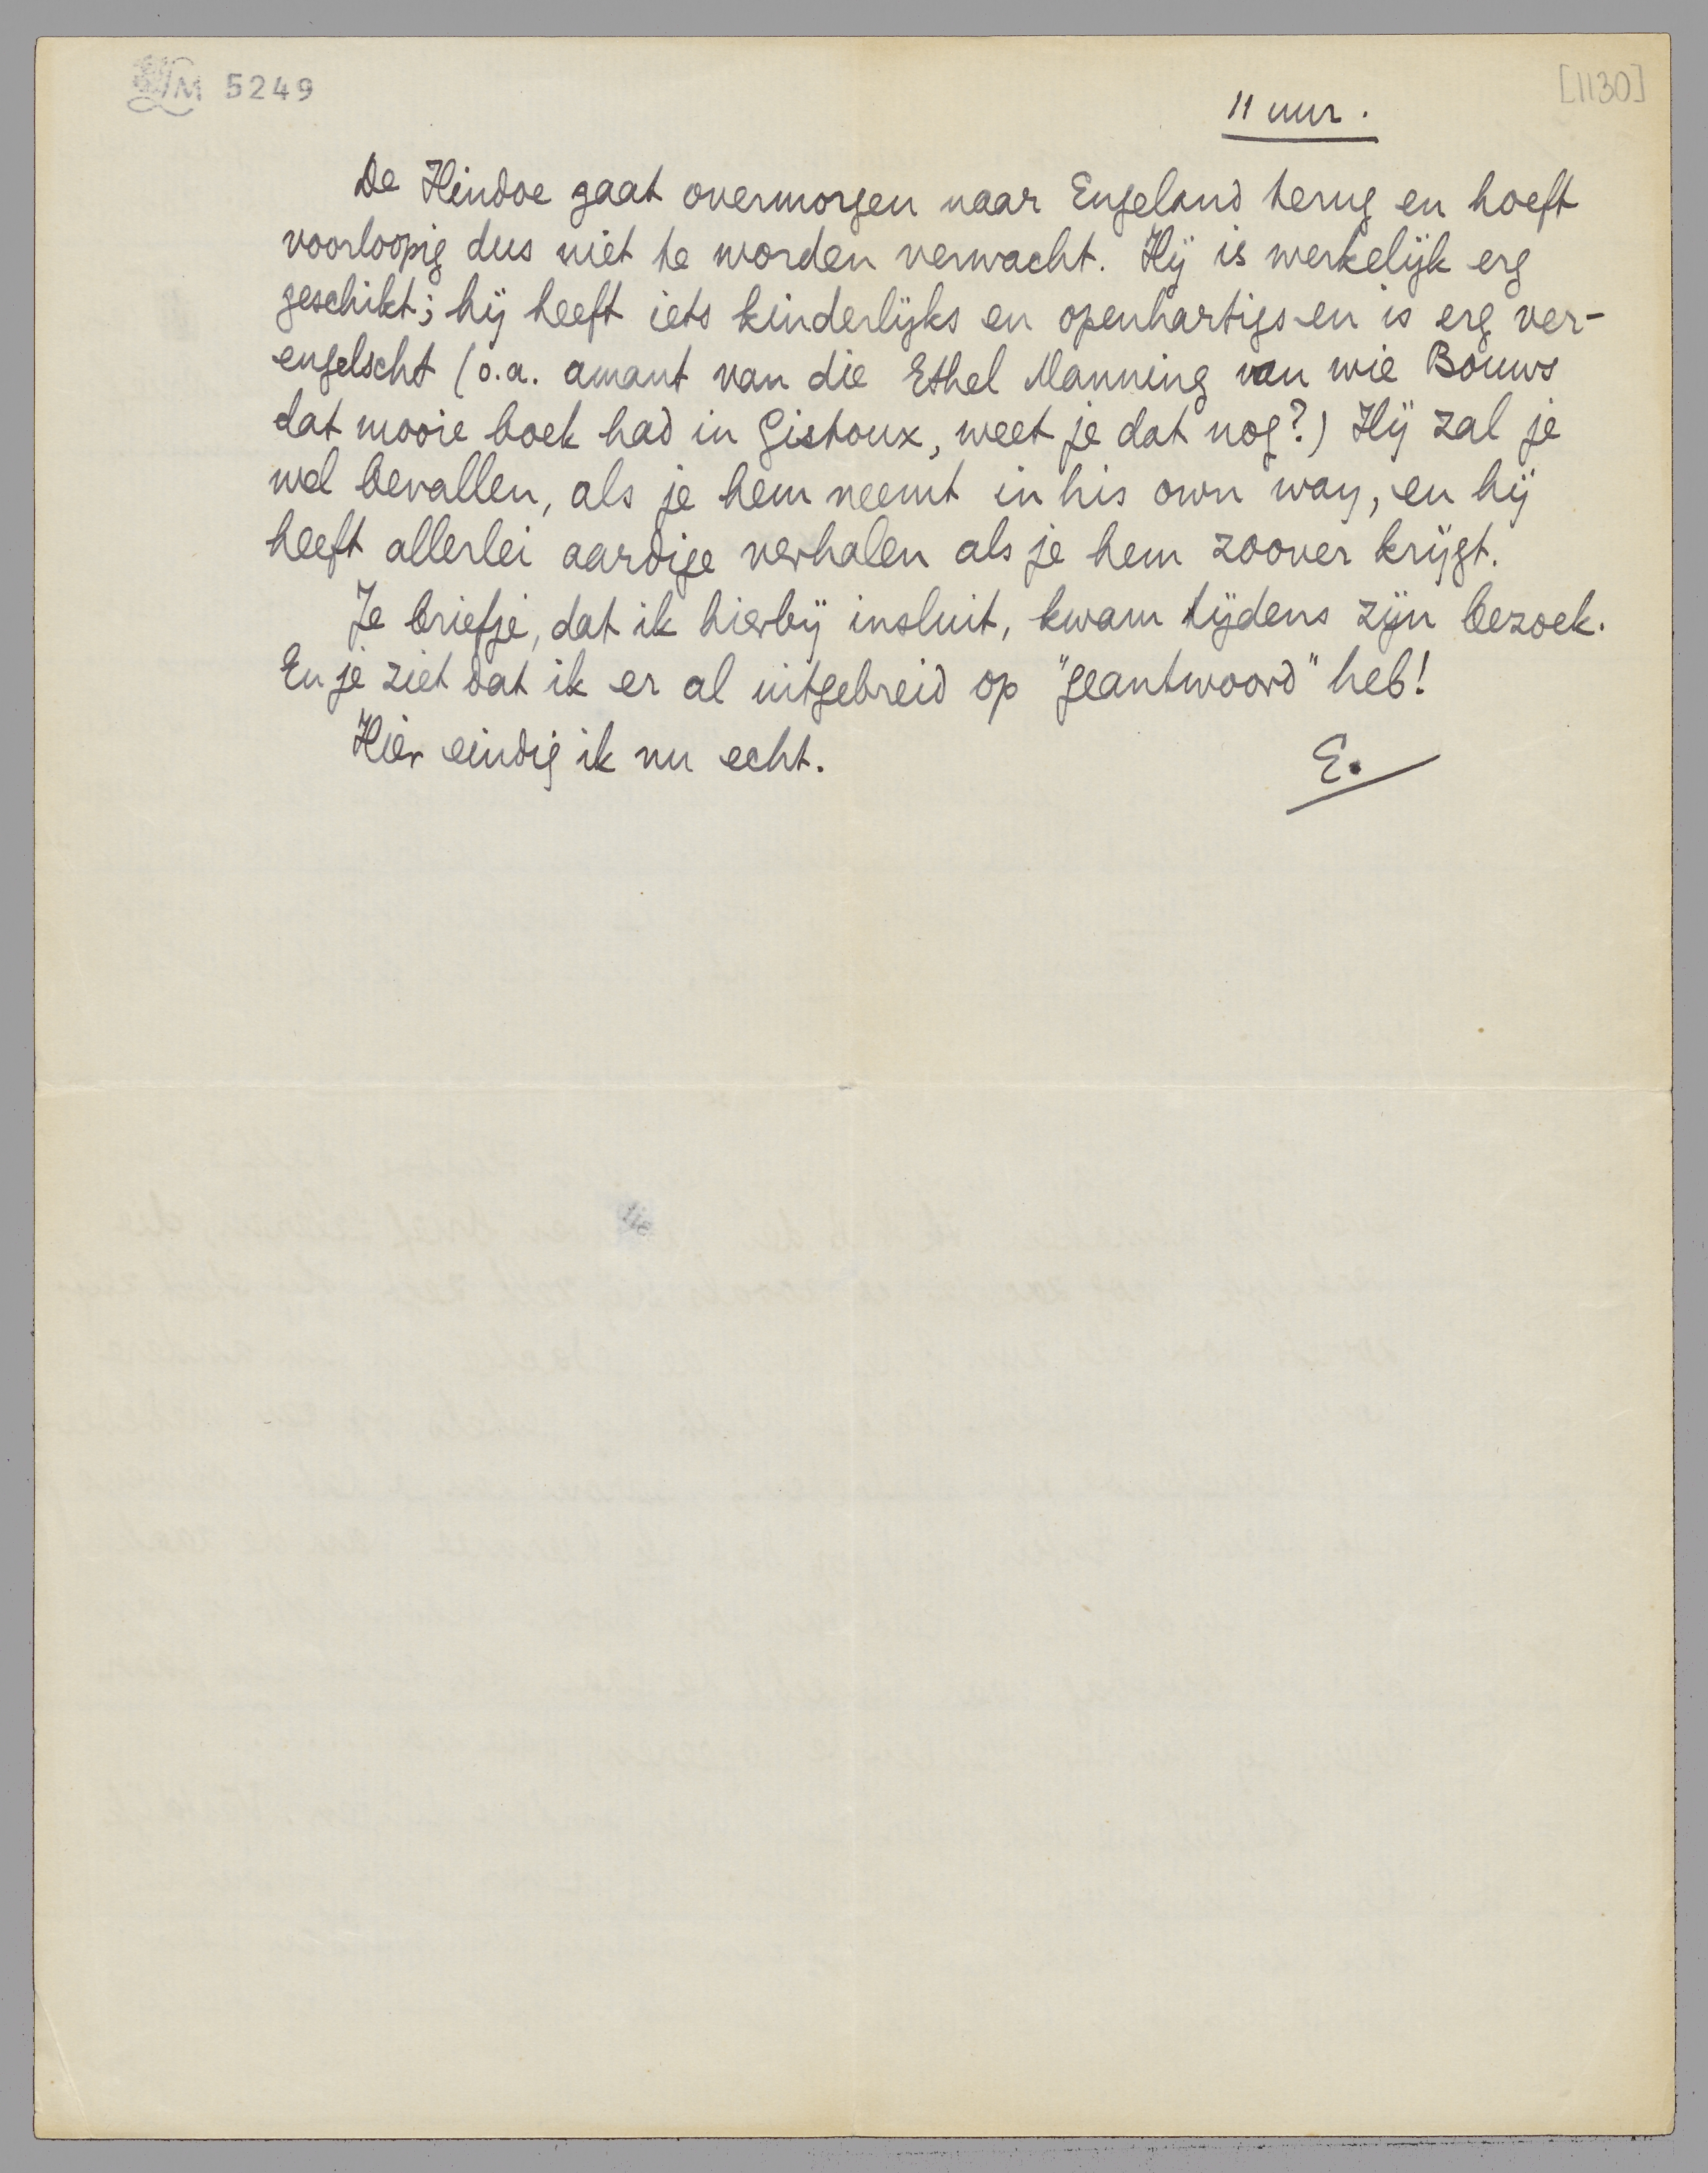 LM 5249
[1130]
11 uur.
De Hindoe gaat overmorgen naar Engeland terug en hoeft
voorloopig dus niet te worden verwacht. Hij is werkelijk erg
geschikt; hij heeft iets kinderlijks en openhartigs en is erg ver-
engelscht (o.a. amant van die Ethel Manning van wie Bouws
dat mooie boek had in Gistoux, weet je dat nog?) Hij zal je
wel bevallen, als je hem neemt in his own way, en hij
heeft allerlei aardige verhalen als je hem zoover krijgt.
Je briefje, dat ik hierbij insluit, kwam tijdens zijn bezoek.
En je ziet dat ik er al uitgebreid op "geantwoord" heb!
Hier eindig ik nu echt.
E.